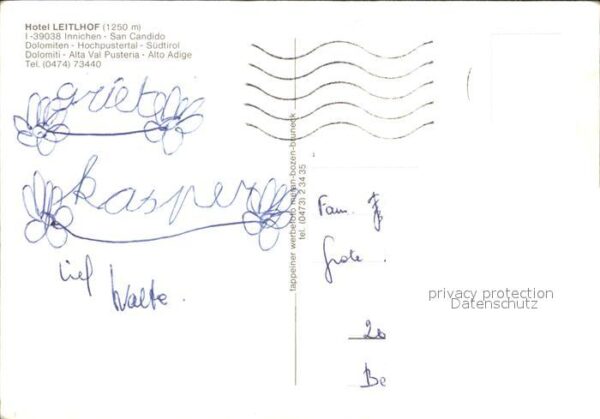 Hotel LEITLHOF (1250 m)
I-39038 Innichen - San Candido
Dolomiten - Hochpustertal - Südtirol
Dolomiti - Alta Val Pusteria - Alto Adige
Tel. (0474) 73440
griet
kasper
tappeiner werbefoto meran-bozen-bruneck
tel. (0473) 2 34 35
Fam.
Grote
privacy protection
Datenschutz
Be